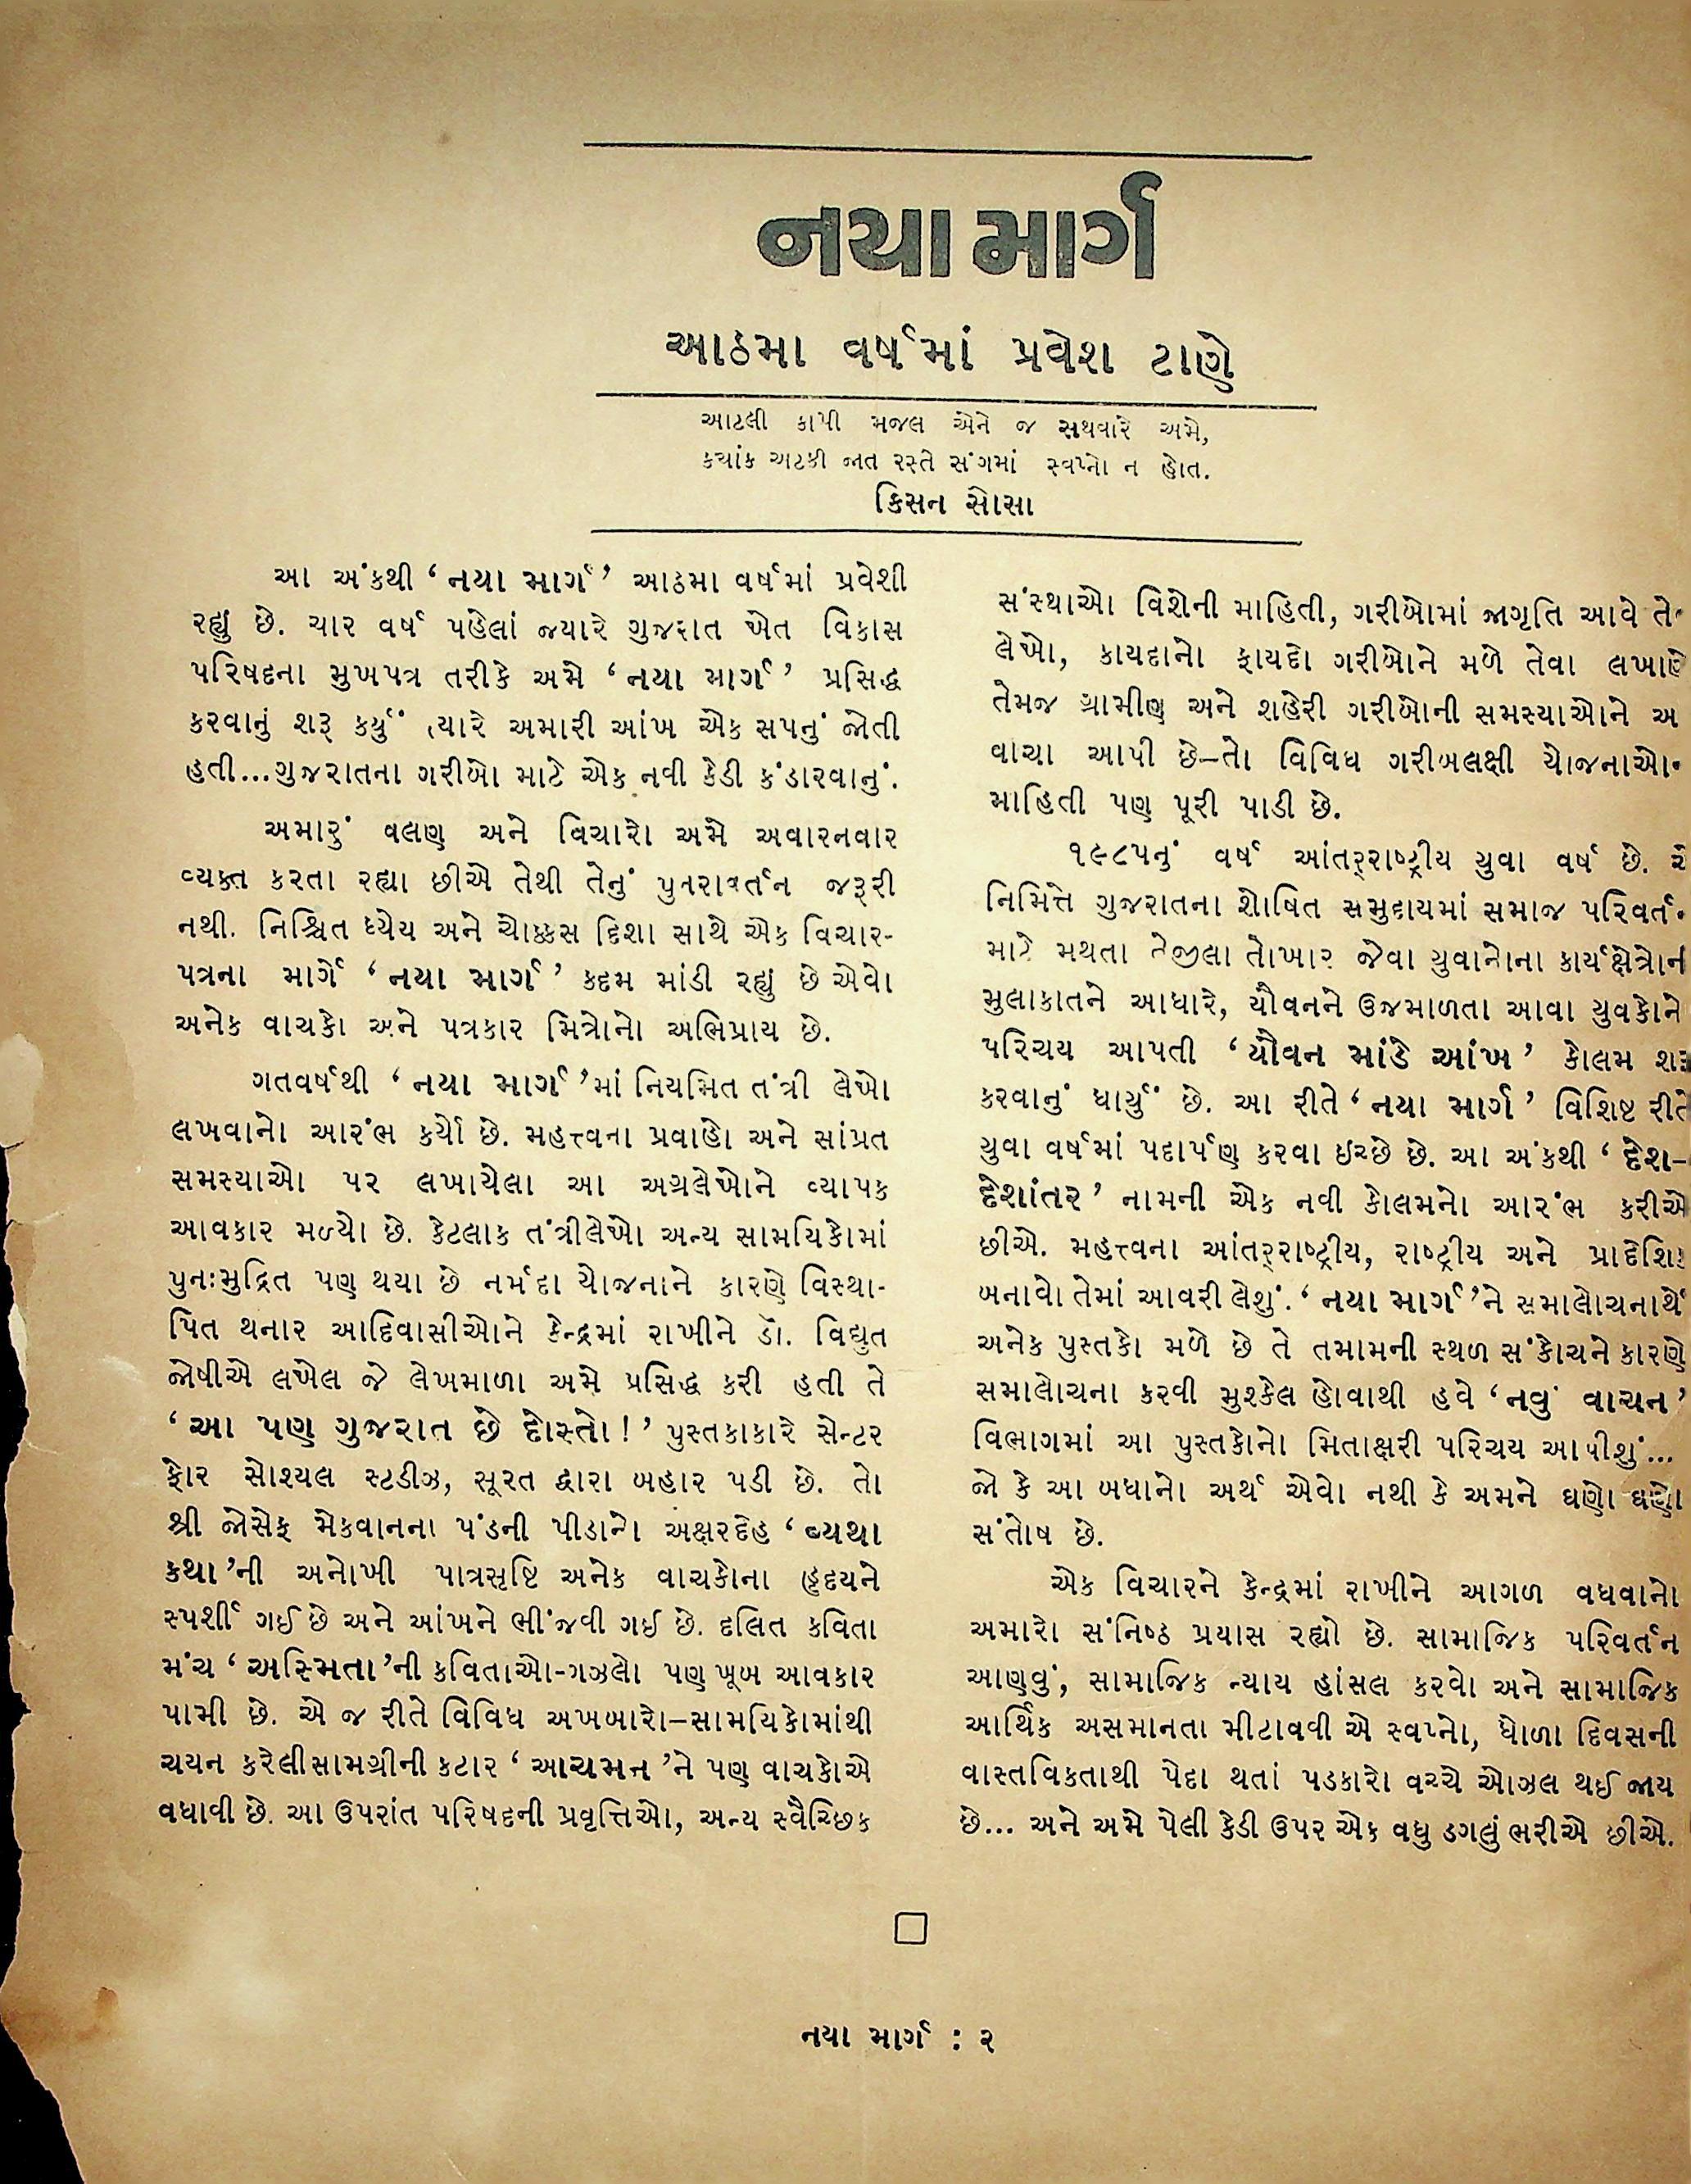 નયા માર્ગ
આઠમા વર્ષમાં પ્રવેશ ટાણે
આટલી કાપી મજલ એને જ સથવારે અમે,
કયાંક અટકી જાત રસ્તે સંગમાં સ્વપ્નો ન હોત.
કિસન સોસા
આ અંકથી ‘નયા માર્ગ’ આઠમા વર્ષમાં પ્રવેશી
રહ્યુ છે. ચાર વર્ષ પહેલાં જ્યારે ગુજરાત ખેત વિકાસ
પરિષદના મુખપત્ર તરીકે અમે ‘નયા માર્ગ’ પ્રસિદ્ધ
કરવાનું શરૂ કર્યું ત્યારે અમારી આંખ એક સપનું જોતી
હતી...ગુજરાતના ગરીબો માટે એક નવી કેડી કંડારવાનું.
અમારું વલણ અને વિચારો અમે અવારનવાર
વ્યક્ત કરતા રહ્યા છીએ તેથી તેનું પુનરાવર્તન જરૂરી
નથી. નિશ્ચિત ધ્યેય અને ચોક્કસ દિશા સાથે એક વિચાર-
પત્રના માર્ગે ‘નયા માર્ગ’ કદમ માંડી રહ્યુ છે એવો
અનેક વાચકો અને પત્રકાર મિત્રોનો અભિપ્રાય છે.
ગતવર્ષથી ‘નયા માર્ગ’માં નિયમિત તંત્રી લેખો
લખવાનો આરંભ કર્યો છે. મહત્ત્વના પ્રવાહો અને સાંપ્રત
સમસ્યાઓ પર લખાયેલા આ અગ્રલેખોને વ્યાપક
આવકાર મળ્યો છે. કેટલાક તંત્રીલેખો અન્ય સામયિકોમાં
પુનઃમુદ્રિત પણ થયા છે નર્મદા યોજનાને કારણે વિસ્થા-
પિત થનાર આદિવાસીઓને કેન્દ્રમાં રાખીને ડૉ. વિદ્યુત
જોષીએ લખેલ જે લેખમાળા અમે પ્રસિદ્ધ કરી હતી તે
‘આ પણ ગુજરાત છે દોસ્તો!’ પુસ્તકાકારે સેન્ટર
ફોર સોશ્યલ સ્ટડીઝ, સૂરત દ્વારા બહાર પડી છે. તો
શ્રી જોસેફ મેકવાનના પંડની પીડાનો અક્ષરદેહ ‘વ્યથા
કથા’ની અનોખી પાત્રસૃષ્ટિ અનેક વાચકોના હૃદયને
સ્પર્શી ગઈ છે અને આંખને ભીંજવી ગઈ છે. દલિત કવિતા
મંચ ‘અસ્મિતા’ની કવિતાઓ-ગઝલો પણ ખૂબ આવકાર
પામી છે. એ જ રીતે વિવિધ અખબારો–સામયિકોમાંથી
ચયન કરેલીસામગ્રીની કટાર ‘આચમન’ને પણ વાચકોએ
વધાવી છે. આ ઉપરાંત પરિષદની પ્રવૃત્તિઓ, અન્ય સ્વૈચ્છિક
સંસ્થાઓ વિશેની માહિતી, ગરીબોમાં જાગૃતિ આવે
લેખો, કાયદાનો ફાયદો ગરીબોને મળે તેવા
તેમજ ગ્રામીણ અને શહેરી ગરીબોની સમસ્યાઓને
વાચા આપી છે–તો વિવિધ ગરીબલક્ષી
માહિતી પણ પૂરી પાડી છે.
૧૯૮૫નું વર્ષ આંતર્રાષ્ટ્રીય યુવા વર્ષ છે.
નિમિત્તે ગુજરાતના શોષિત સમુદાયમાં સમાજ
માટે મથતા તેજીલા તોખાર જેવા યુવાનોના
મુલાકાતને આધારે, યૌવનને ઉજમાળતા આવા યુવકોને
પરિચય આપતી ‘યૌવન માંડે આંખ’ કોલમ શરૂ
કરવાનું ધાર્યું છે. આ રીતે ‘નયા માર્ગ’ વિશિષ્ટ રીતે
યુવા વર્ષમાં પદાર્પણ કરવા ઇચ્છે છે. આ અંકથી ‘દેશ–
દેશાંતર’ નામની એક નવી કોલમનો આરંભ કરીએ
છીએ. મહત્ત્વના આંતર્રાષ્ટ્રીય, રાષ્ટ્રીય અને
બનાવો તેમાં આવરી લેશું. ‘નયા માર્ગ’ને સમાલોચનાર્થે
અનેક પુસ્તકો મળે છે તે તમામની સ્થળ સંકોચને કારણે
સમાલોચના કરવી મુશ્કેલ હોવાથી હવે ‘નવું વાચન’
વિભાગમાં આ પુસ્તકોનો મિતાક્ષરી પરિચય આપીશું...
જો કે આ બધાનો અર્થ એવો નથી કે અમને ઘણો ઘણો
સંતોષ છે.
એક વિચારને કેન્દ્રમાં રાખીને આગળ વધવાનો
અમારો સંનિષ્ઠ પ્રયાસ રહ્યો છે. સામાજિક પરિવર્તન
આણવું, સામાજિક ન્યાય હાંસલ કરવો અને સામાજિક
આર્થિક અસમાનતા મીટાવવી એ સ્વપ્નો, ધોળા દિવસની
વાસ્તવિકતાથી પેદા થતાં પડકારો વચ્ચે ઓઝલ થઈ જાય
છે... અને અમે પેલી કેડી ઉપર એક વધુ ડગલું ભરીએ છીએ.
નયા માર્ગ : ૨